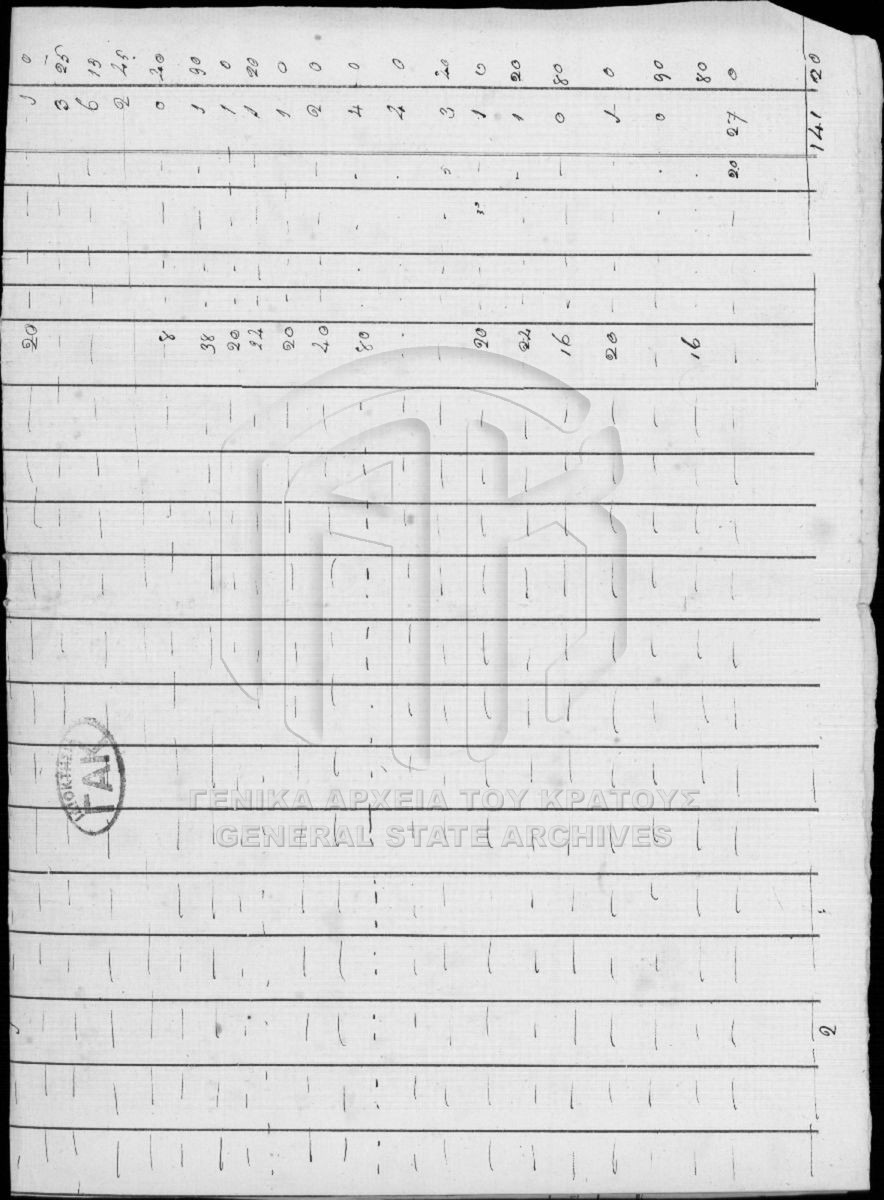 20 1 0
3 25
6 13
2
8 0 40
38 1 90
20 1 0
24 1 20
20 1 0
40 2 0
80 4 0
4 0
3 40
20 1 0
24 1 20
16 0 80
20 1 0
0 90
16 80
20 27 0
2 141 20
ΓΑΚ
ΓΕΝΙΚΑ ΑΡΧΕΙΑ ΤΟΥ ΚΡΑΤΟΥΣ
GENERAL STATE ARCHIVES